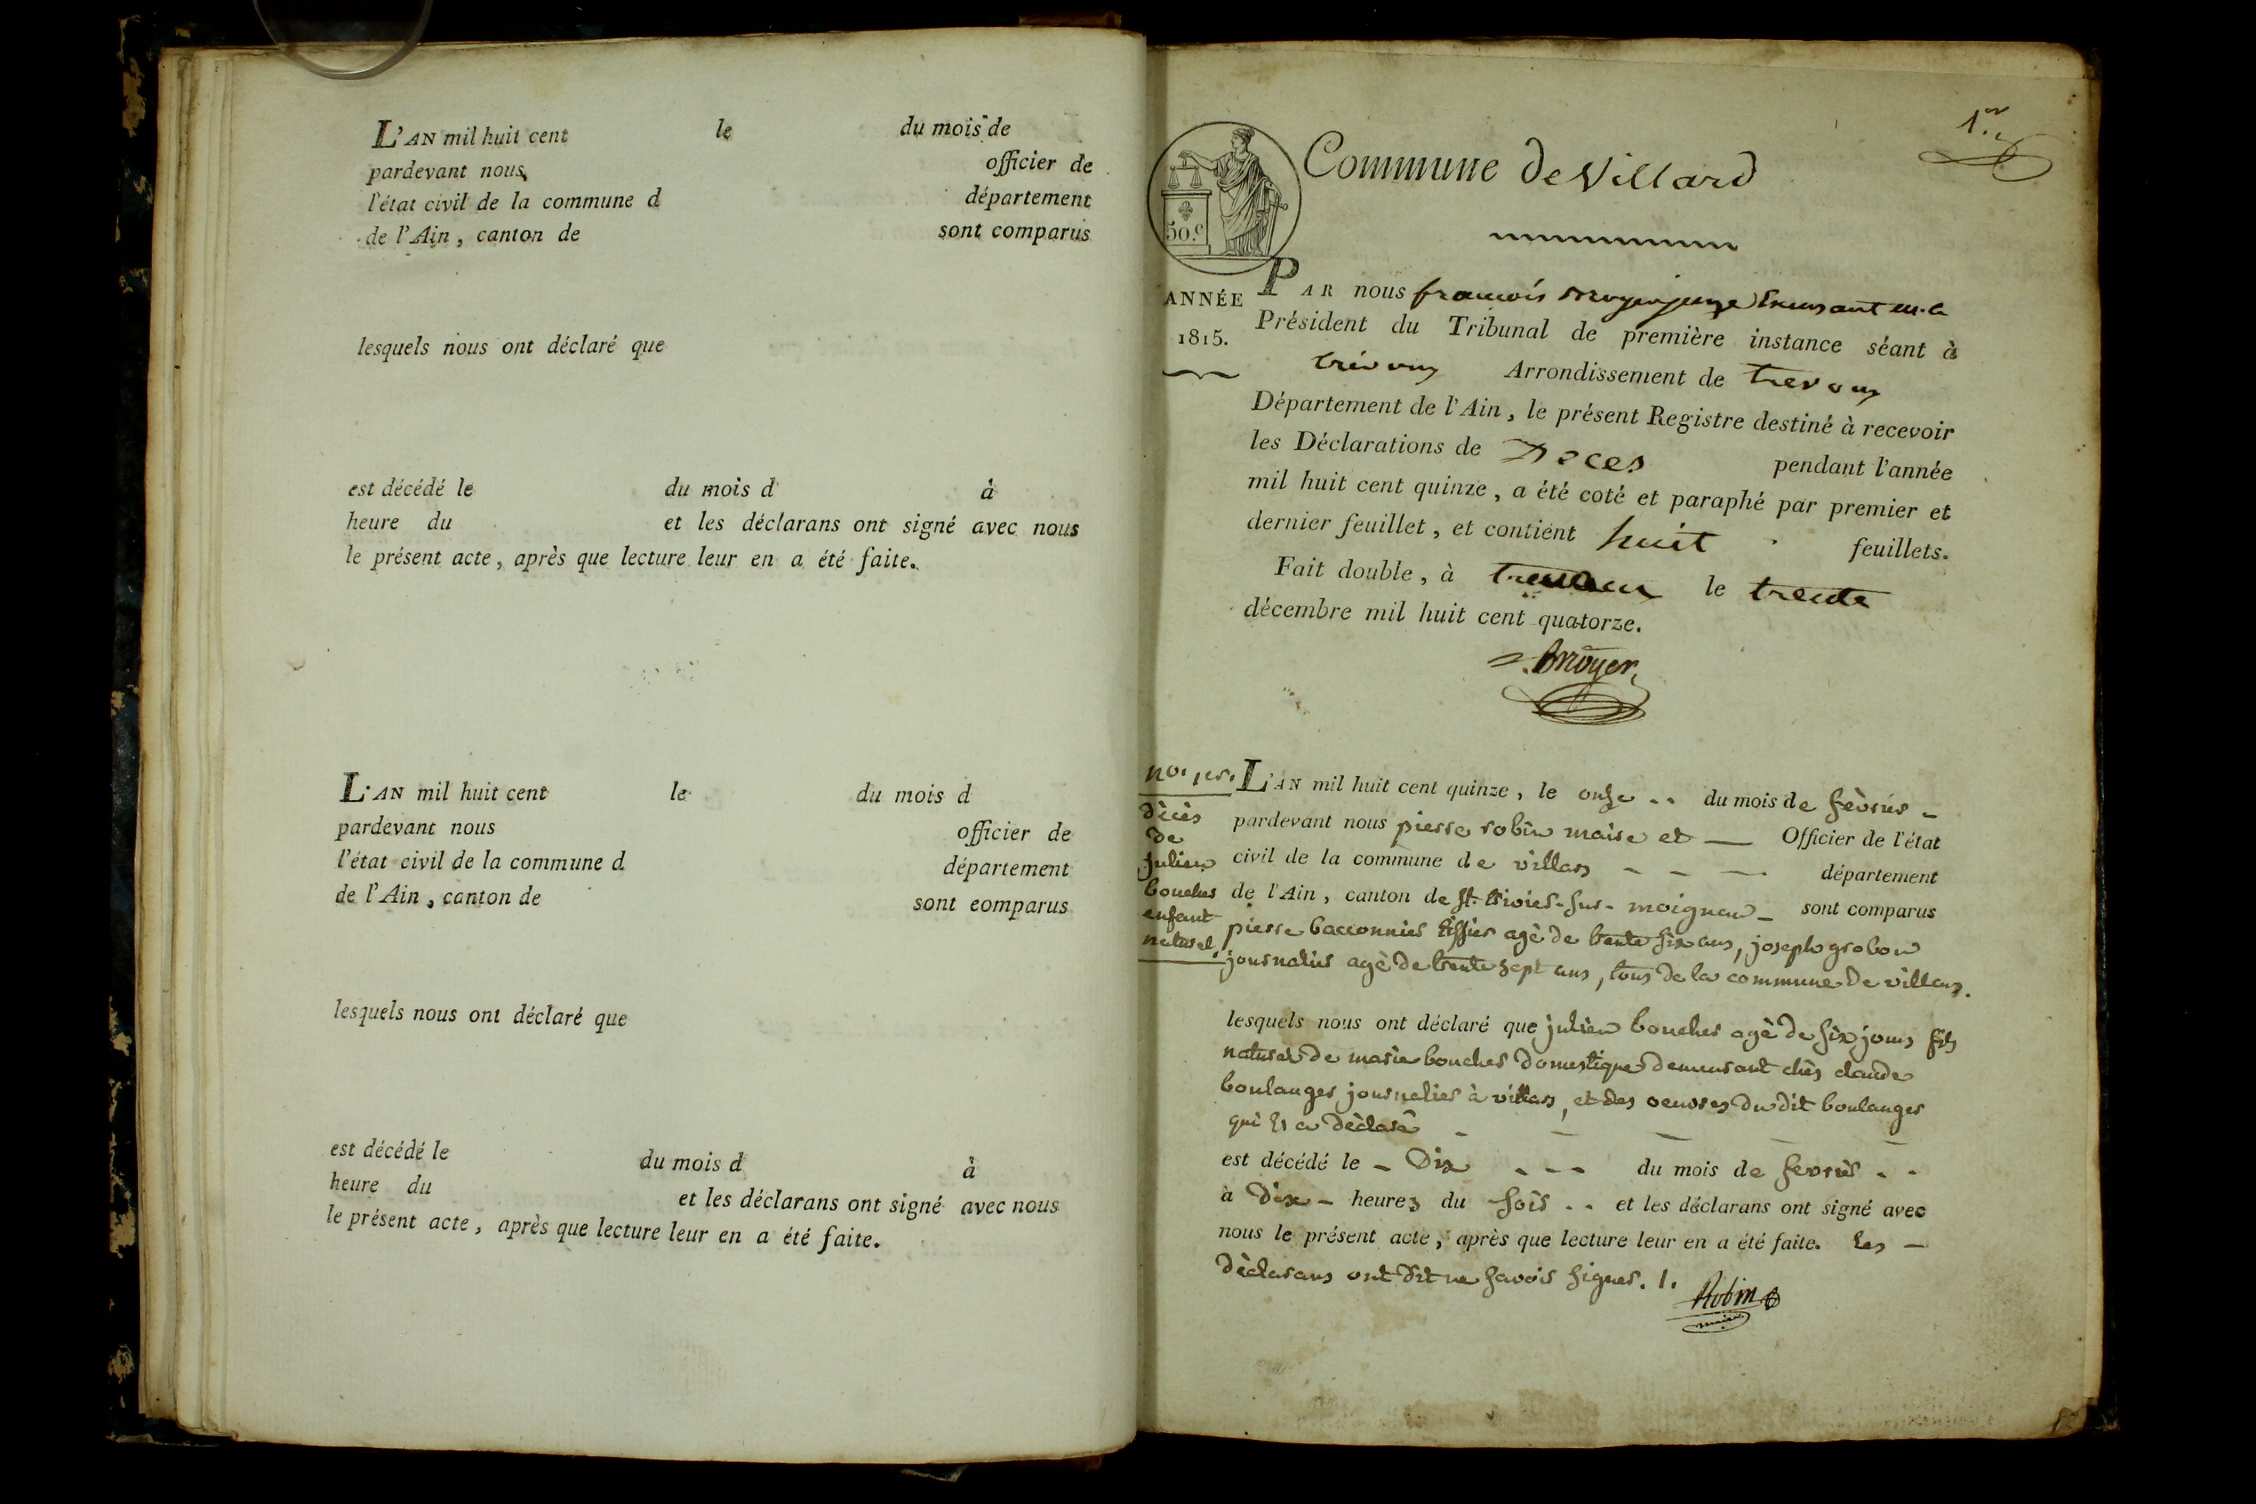 L'AN mil huit cent le du mois de
pardevant nous officier de
l'état civil de la commune d département
de l'Ain, canton de sont comparus
lesquels nous ont déclaré que
est décédé le du mois d à
heure du et les déclarans ont signé avec nous
le présent acte, après que lecture leur en a été faite.
L'AN mil huit cent le du mois d
pardevant nous officier de
l'état civil de la commune d département
de l'Ain, canton de sont comparus
lesquels nous ont déclaré que
est décédé le du mois d à
heure du et les déclarans ont signé avec nous
le présent acte, après que lecture leur en a été faite.
1er
Commune de Villard
50.c
ANNÉE
1815.
PAR nous françois
Président du Tribunal de première instance séant à
trévoux Arrondissement de trevoux
Département de l'Ain, le présent Registre destiné à recevoir
les Déclarations de Deces pendant l'année
mil huit cent quinze, a été coté et paraphé par premier et
dernier feuillet, et contient huit feuillets.
Fait double, à le trente
décembre mil huit cent quatorze.
no. 1er.
décès
de
julien
boucher
enfant
naturel.
L'AN mil huit cent quinze, le onze du mois de fèvrier
pardevant nous pierre robin maire et Officier de l'état
civil de la commune de villars département
de l'Ain, canton de st. trivier-sur-moignen sont comparus
pierre bacconnier tissier agè de trente six ans, joseph grobon
journalier agè de trente sept ans, tous de la commune de villars.
lesquels nous ont déclaré que julien boucher agè de six jours fils
naturel de marie boucher domestique demeurant chès claude
boulanger journalier à villars, et des oeuvres du dit boulanger
qui l'a dèclarè
est décédé le dix du mois de fevrier
à dix heures du soir et les déclarans ont signé avec
nous le présent acte, après que lecture leur en a été faite. Les
dèclarans ont dit ne savoir signer.
Robin
maire